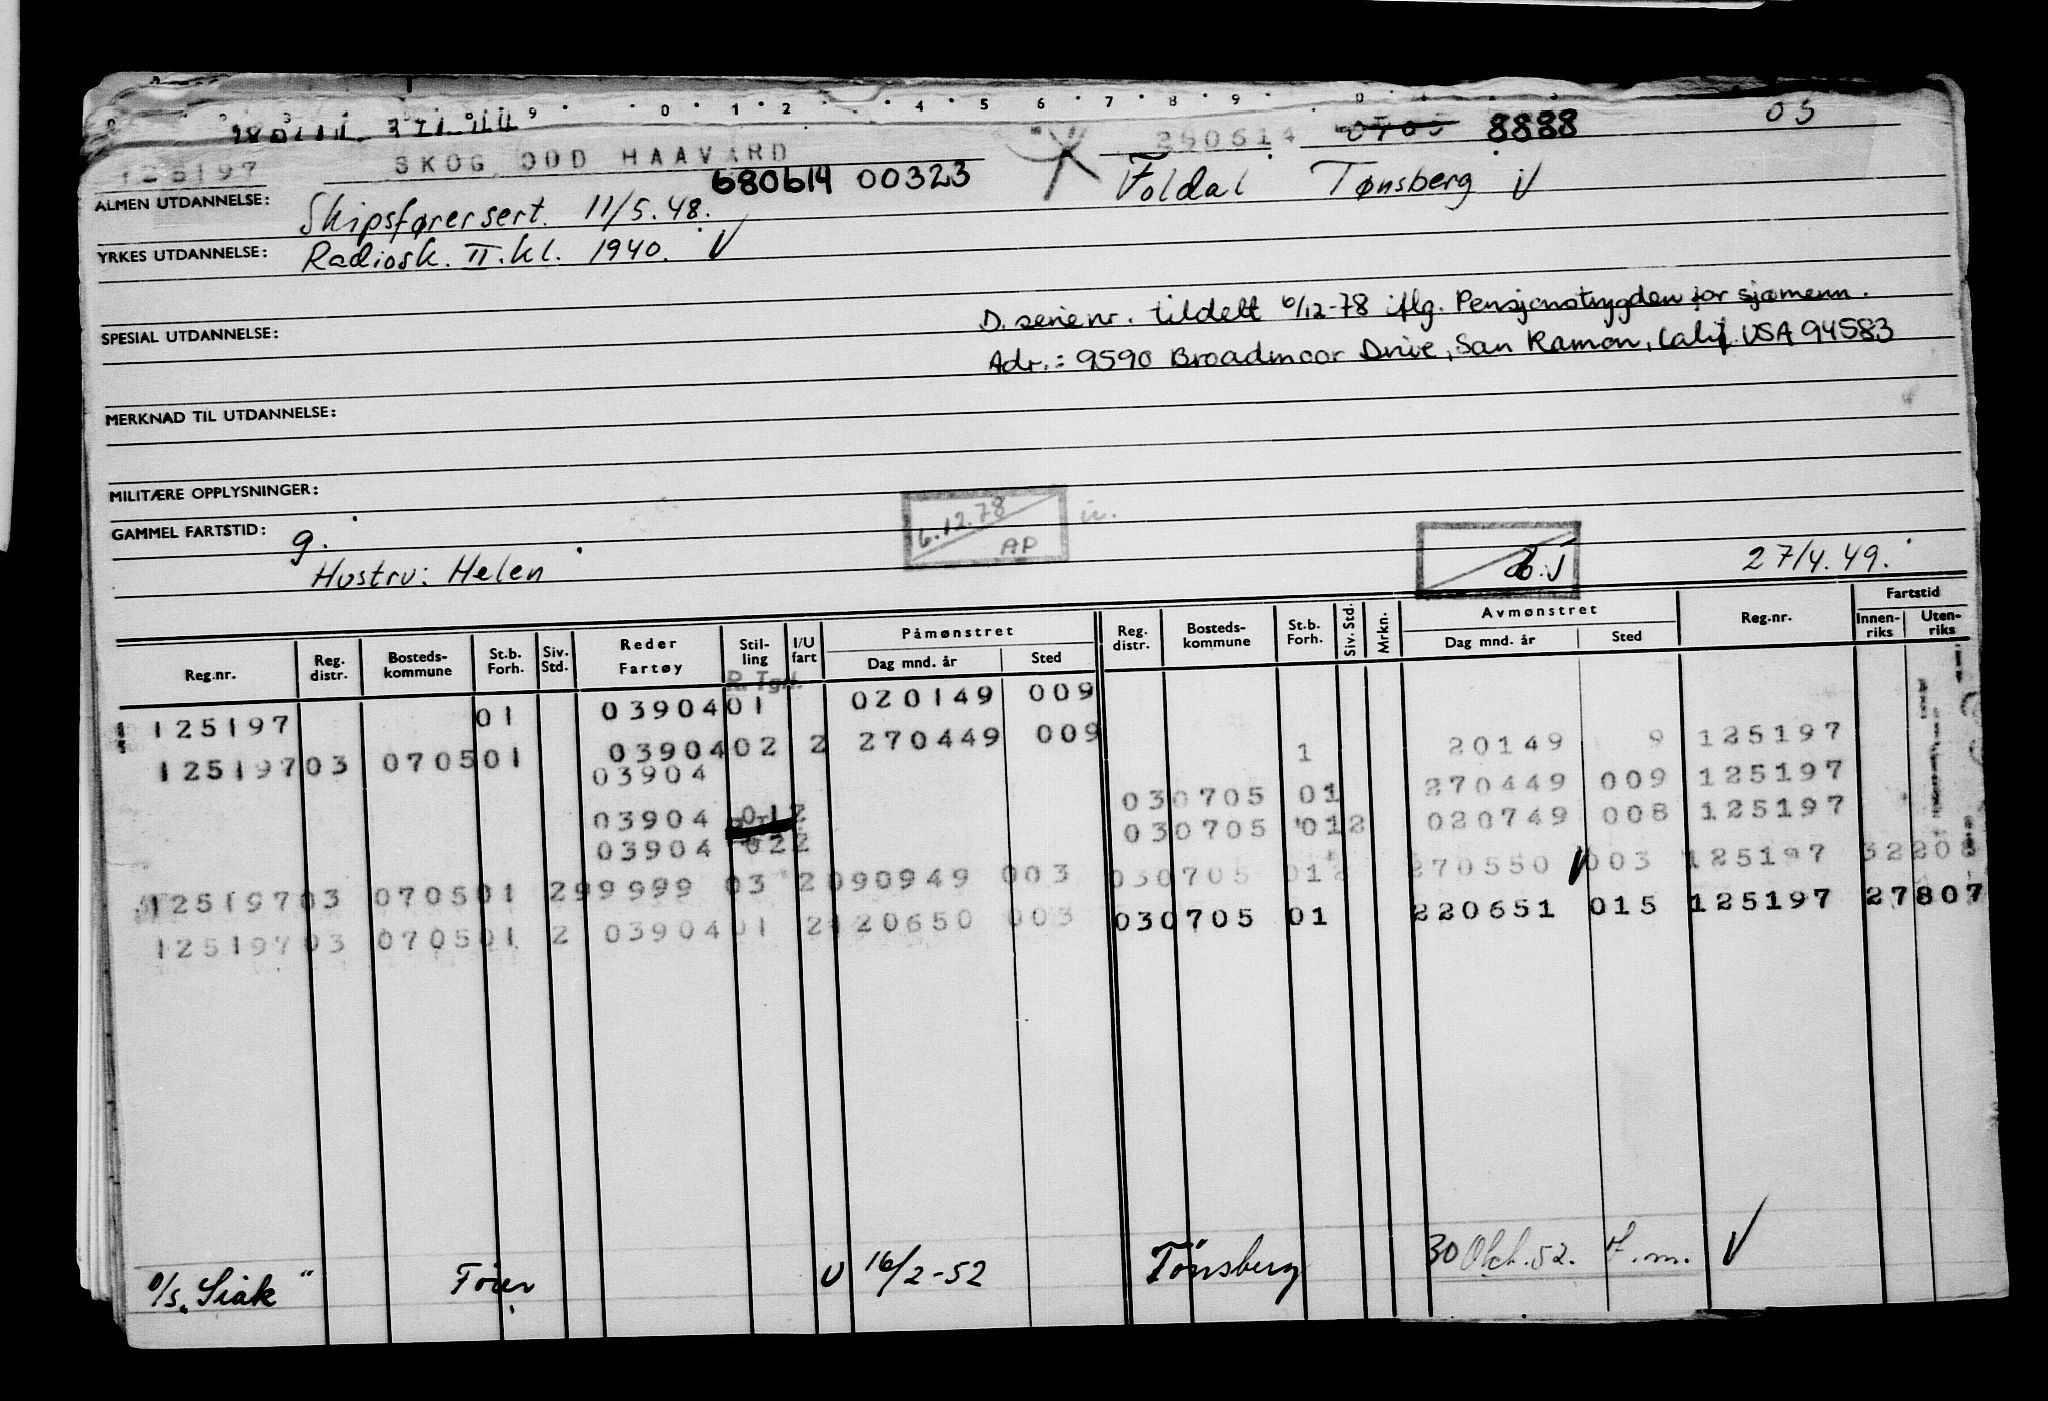 280614 0705 8888 05
125197 SKOG ODD HAAVARD
680614 00323 Foldal Tønsberg
ALMEN UTDANNELSE: Skipsførersert. 11/5.48.
YRKES UTDANNELSE: Radiosk. II. kl. 1940.
D. serienr. tildelt 6/12-78 iflg. Pensjonstrygden for sjømenn.
SPESIAL UTDANNELSE:
Adr.: 9590 Broadmoor Drive, San Ramon, Calif. USA 94583
MERKNAD TIL UTDANNELSE:
MILITÆRE OPPLYSNINGER:
6.12.78 AP
GAMMEL FARTSTID: g.
Hustru: Helen 27/4.49.
Reg.nr. Reg. distr. Bosteds-kommune St.b. Forh. Siv. Std. Reder Fartøy Stil-ling I/U fart Påmønstret Dag mnd. år Sted Reg. distr. Bosteds-kommune St.b. Forh. Siv. Std. Mrkn. Avmønstret Dag mnd. år Sted Reg.nr. Fartstid Innen-riks Uten-riks
R. Tgr.
125197 01 03904 01 020149 009
125197 03 0705 01 03904 02 2 270449 009 1 20149 9 125197
03904 03 0705 01 270449 009 125197
03904 01 2 03 0705 01 2 020749 008 125197
03904 02 2
125197 03 0705 01 2 99999 03 2 090949 003 03 0705 01 2 270550 003 125197 32208
125197 03 0705 01 2 03904 01 2 120650 003 03 0705 01 220651 015 125197 27807
D/s "Siak" Fører U 16/2-52 Tønsberg 30 Okt. 52. f.m.